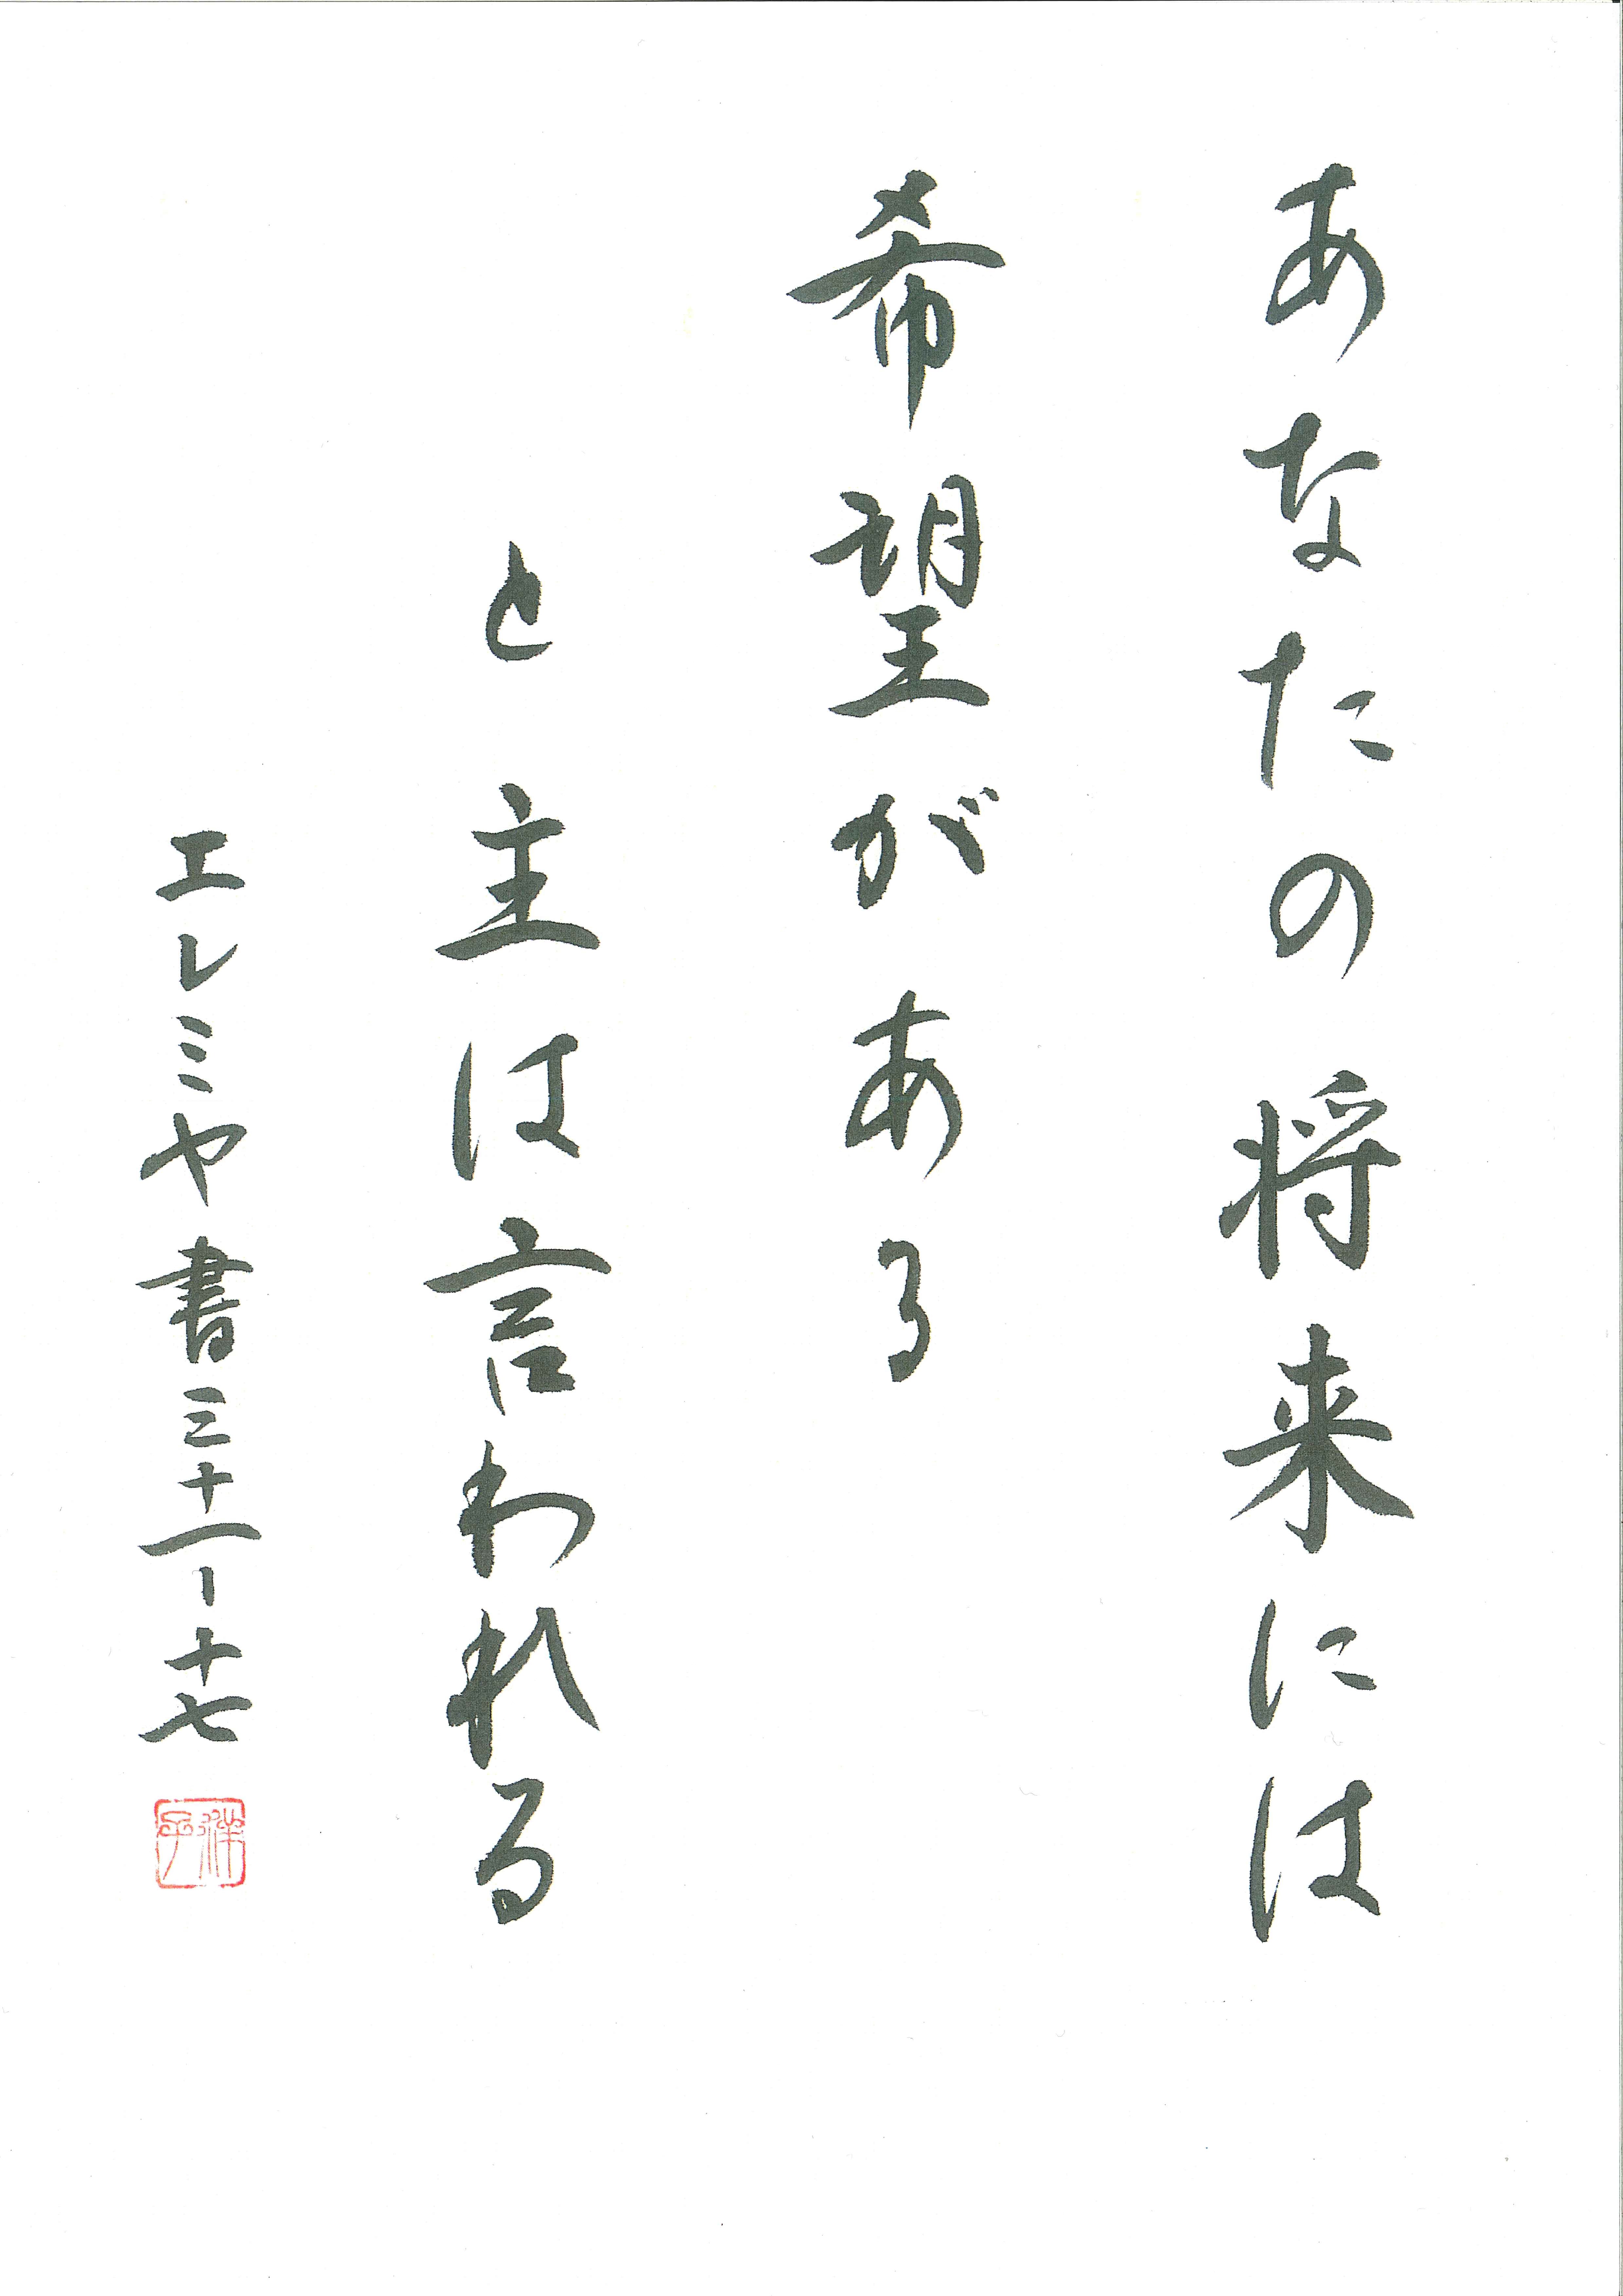 あなたの将来には
希望がある
と主は言われる
エレミヤ書三十一-十七